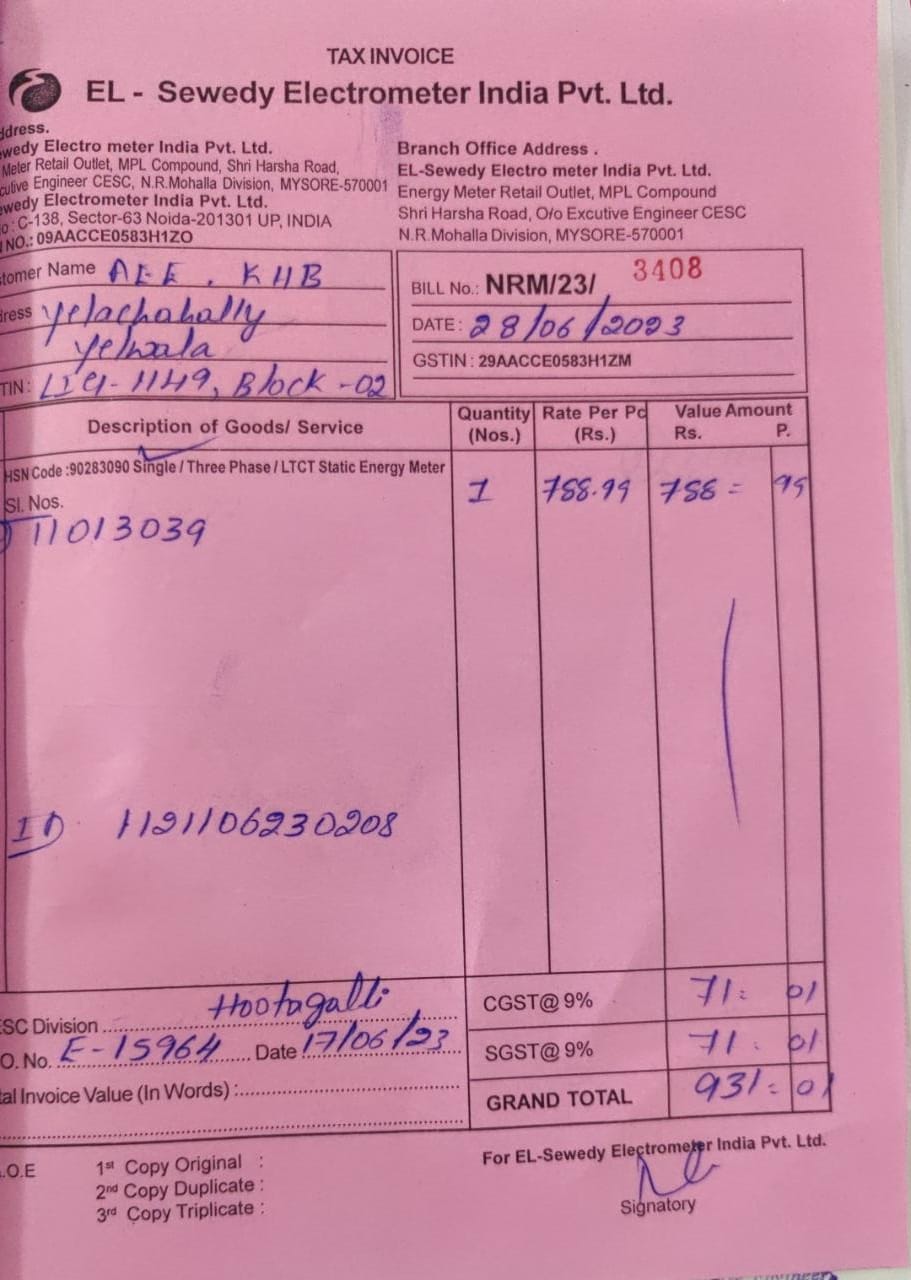 TAX INVOICE
EL - Sewedy Electrometer India Pvt. Ltd.
ddress.
wedy Electro meter India Pvt. Ltd.
Meter Retail Outlet, MPL Compound, Shri Harsha Road,
cutive Engineer CESC, N.R.Mohalla Division, MYSORE-570001
ewedy Electrometer India Pvt. Ltd.
o : C-138, Sector-63 Noida-201301 UP, INDIA
NO.: 09AACCE0583H1ZO
Branch Office Address .
EL-Sewedy Electro meter India Pvt. Ltd.
Energy Meter Retail Outlet, MPL Compound
Shri Harsha Road, O/o Excutive Engineer CESC
N.R.Mohalla Division, MYSORE-570001
tomer Name AEE . KHB
ress Yelachahally
Yelwala
TIN: LIG-1149, Block-02
BILL No.: NRM/23/ 3408
DATE : 28/06/2023
GSTIN : 29AACCE0583H1ZM
Description of Goods/ Service
Quantity (Nos.)
Rate Per Pc (Rs.)
Value Amount
Rs. P.
HSN Code :90283090 Single / Three Phase / LTCT Static Energy Meter
Sl. Nos.
1 788.99 788 = 99
11013039
ID 1121106230208
SC Division Hootagalli
O. No. E-15964 Date 17/06/23
al Invoice Value (In Words) :
CGST@ 9% 71 : 01
SGST@ 9% 71 . 01
GRAND TOTAL 931 = 01
.O.E
1st Copy Original :
2nd Copy Duplicate :
3rd Copy Triplicate :
For EL-Sewedy Electrometer India Pvt. Ltd.
Signatory